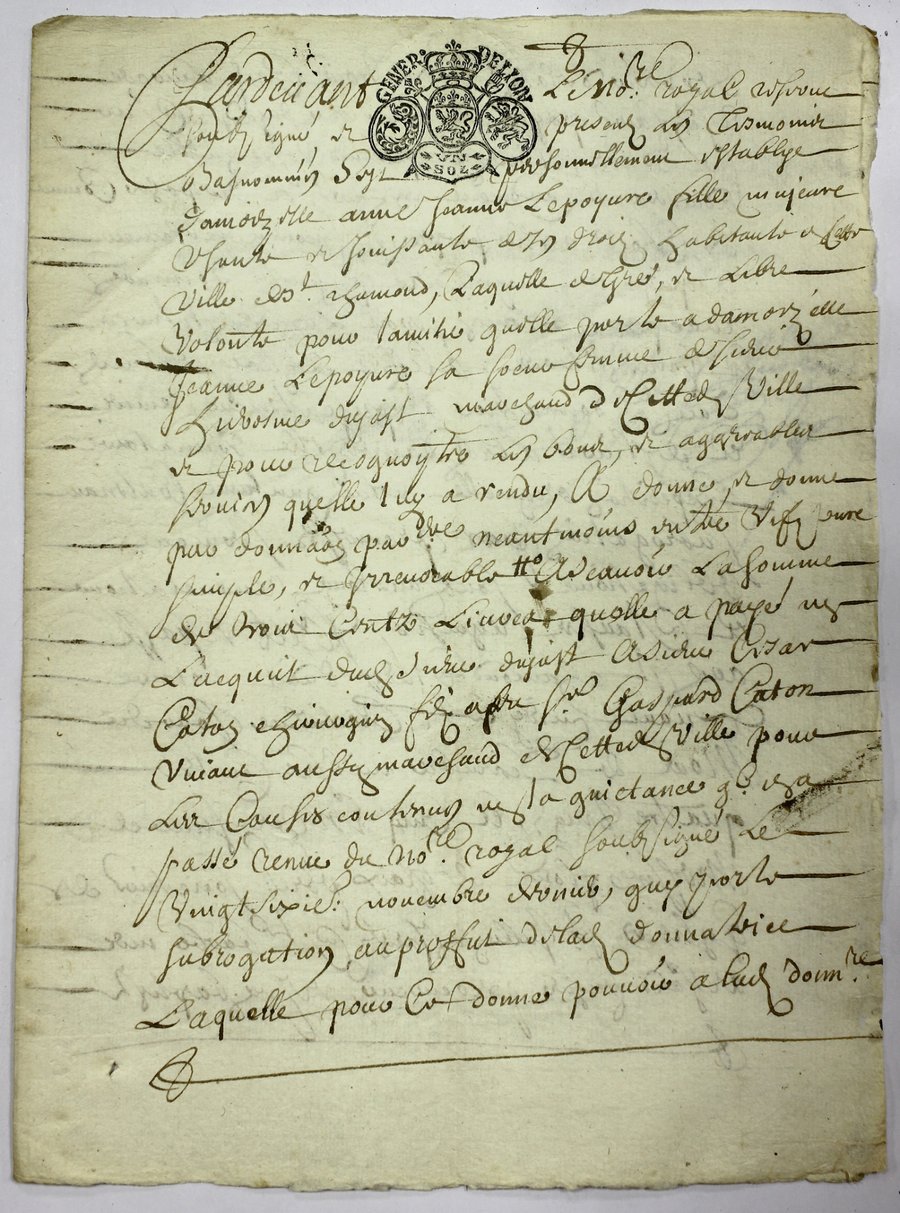 GENER. DE LYON
UN
SOL
Pardevant Le No.re royal reservé
soubzsigné, et presens les tesmoins
bas nommés s'est personnellement establye
damoizelle anne Jeanne Lepoyure fille majeure
usante et jouissante de ses droits habitante a Cette
ville de St. chamond, Laquelle de gré, et Libre
volonté pour lamitié quelle porte a damoizelle
Jeanne Lepoyure sa soeur femme de sieur
dujast marchand de Cetted. Ville
et pour recognoytre les bons, et aggreables
services quelle luy a rendu, A donné, et donne
par donnaōn par neantmoins entre vifs pure
simple, et Irrevocable Ascavoir La somme
de trois Centz Livres quelle a payé en
L'acquit dud. sieur dujast A sieur Cesar
Caton chirurgien filz a feu sr. Gaspard Caton
vivant aussy marchand de Cetted. Ville pour
Les Causes contenues en sa quictance q.
passé receue du No.re royal soubsigné Le
vingt sixie. novembre dernier, quy porte
subrogation au proffit de lad. donnatrice
Laquelle pour Ce donne pouvoir a lad. donn.re